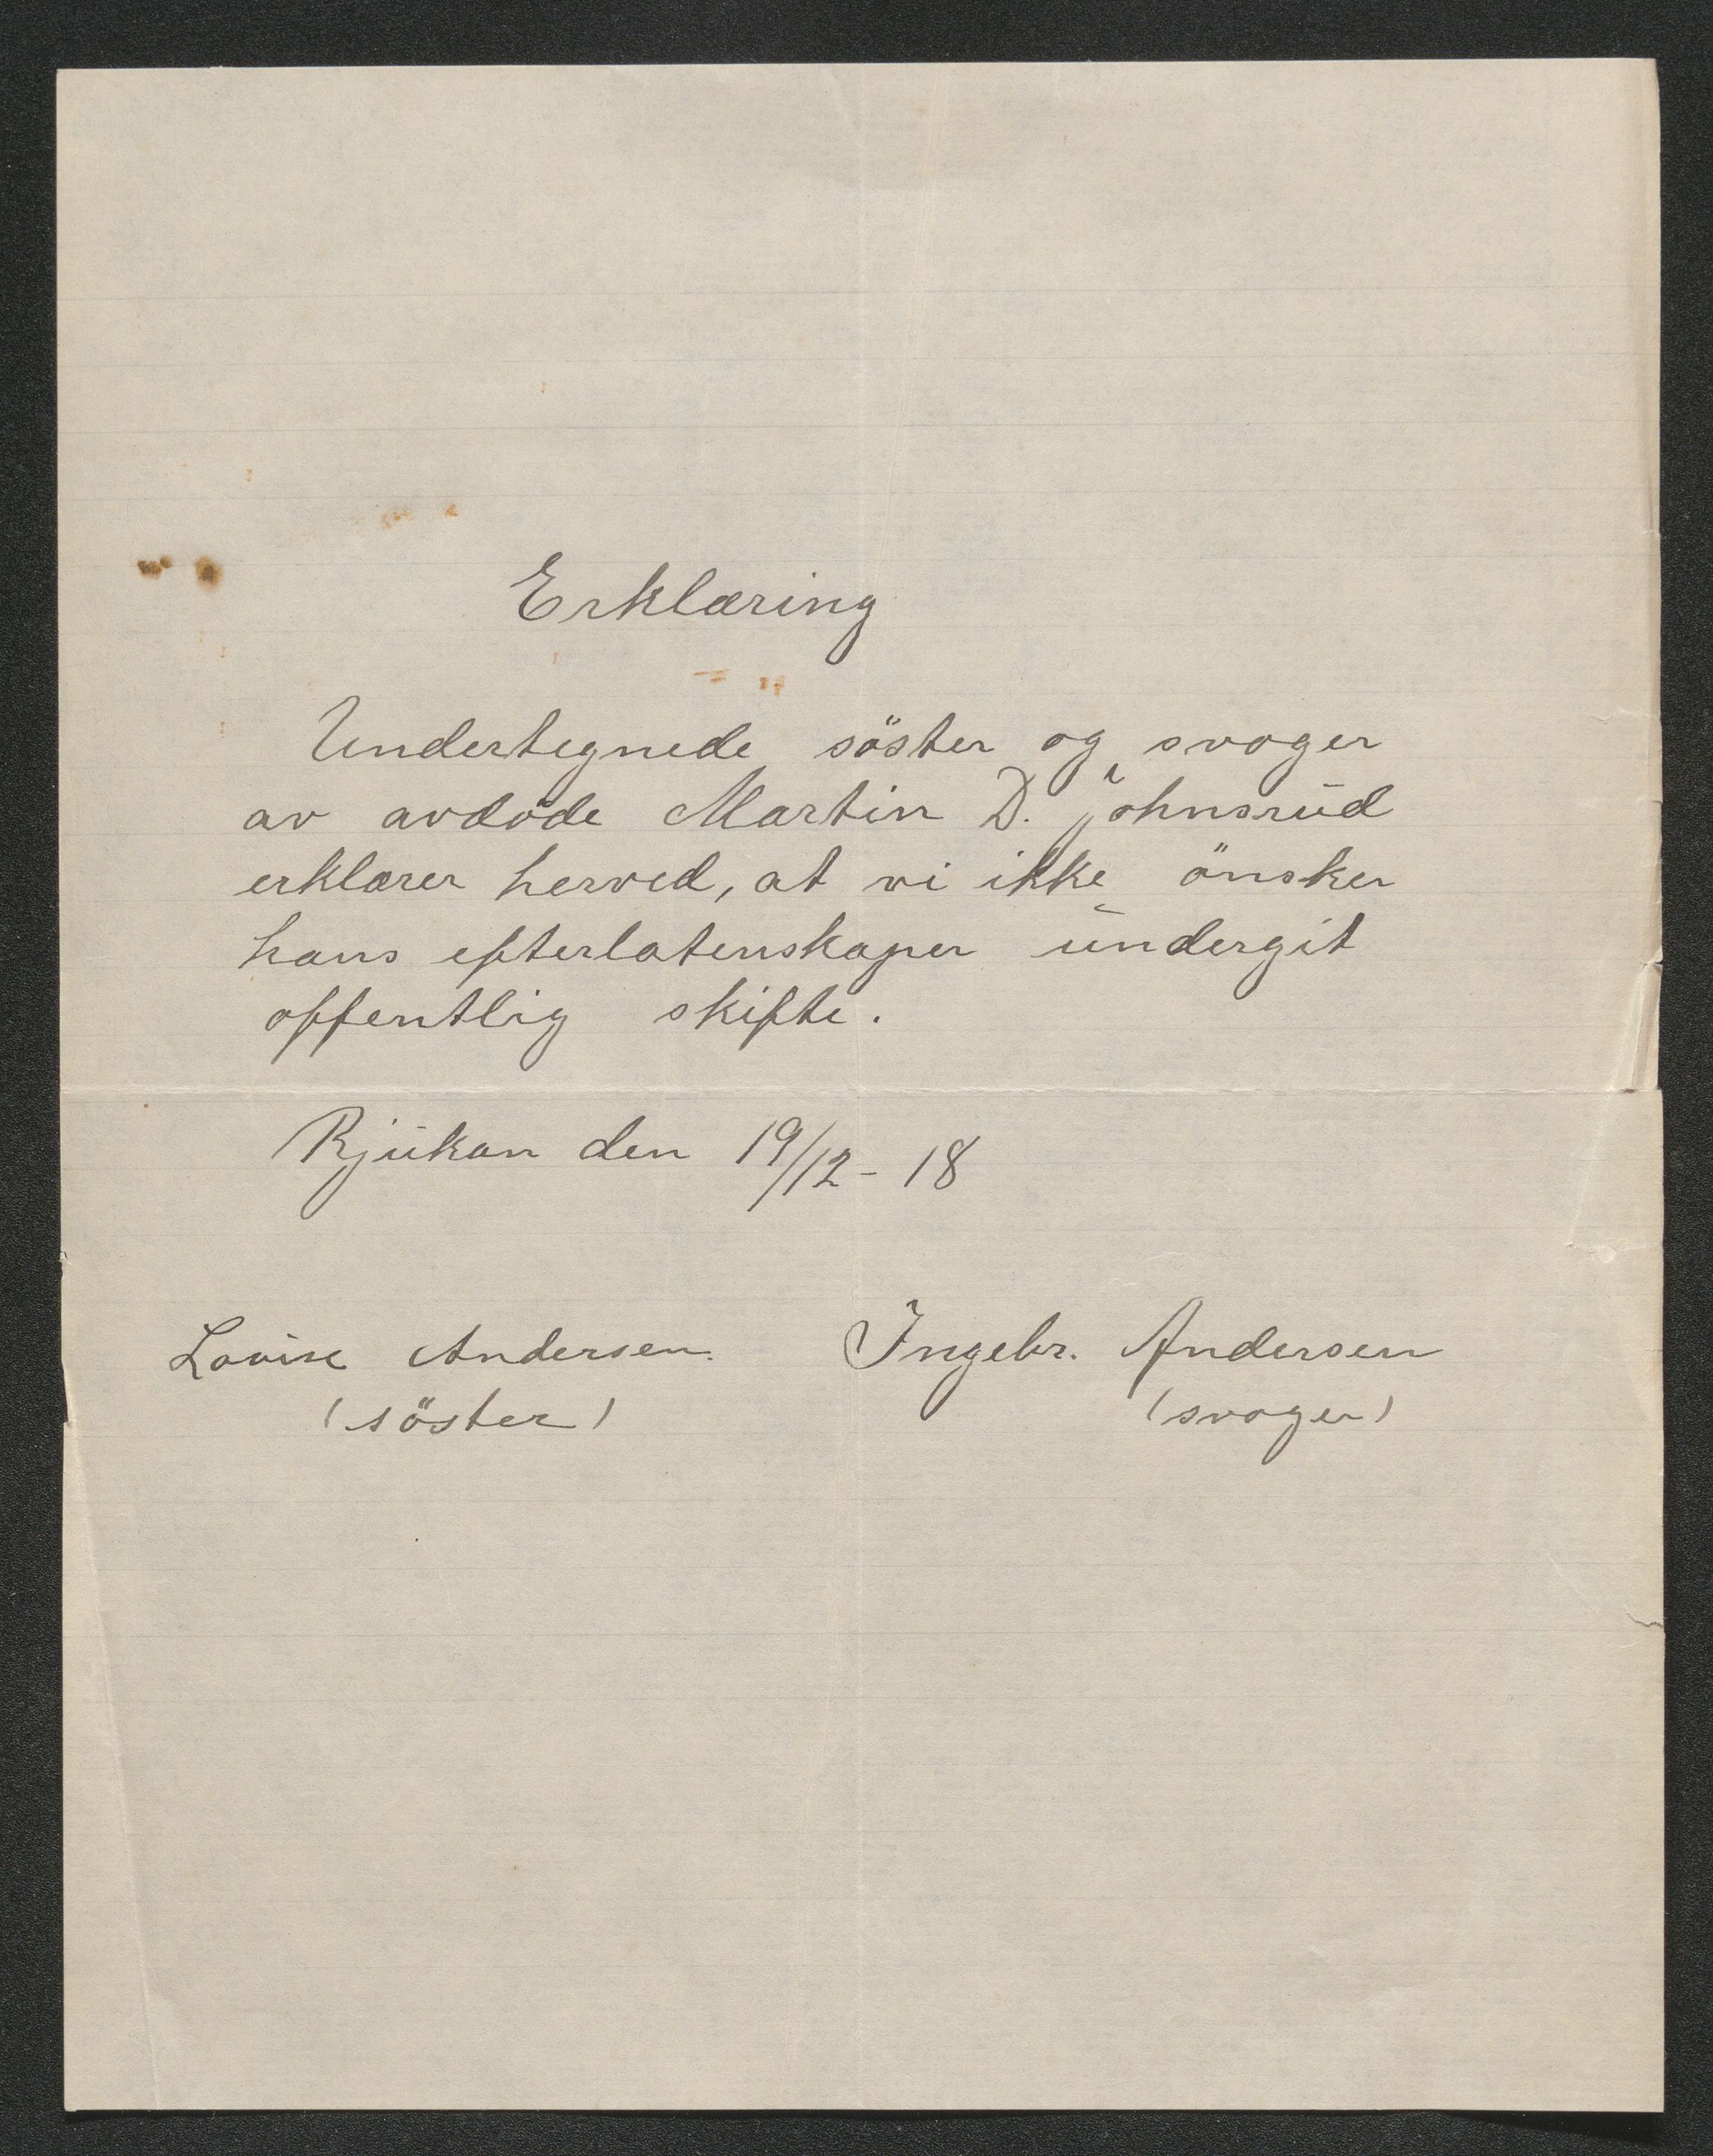 Erklæring
Undertegnede söster og svoger
av avdöde Martin D. Johnsrud
erklærer herved, at vi ikke önsker
hans efterlatenskaper undergit
offentlig skifte.
Rjukan den 19/12 - 18
Lovise Andersen. Ingebr. Andersen
(söster) (svoger)